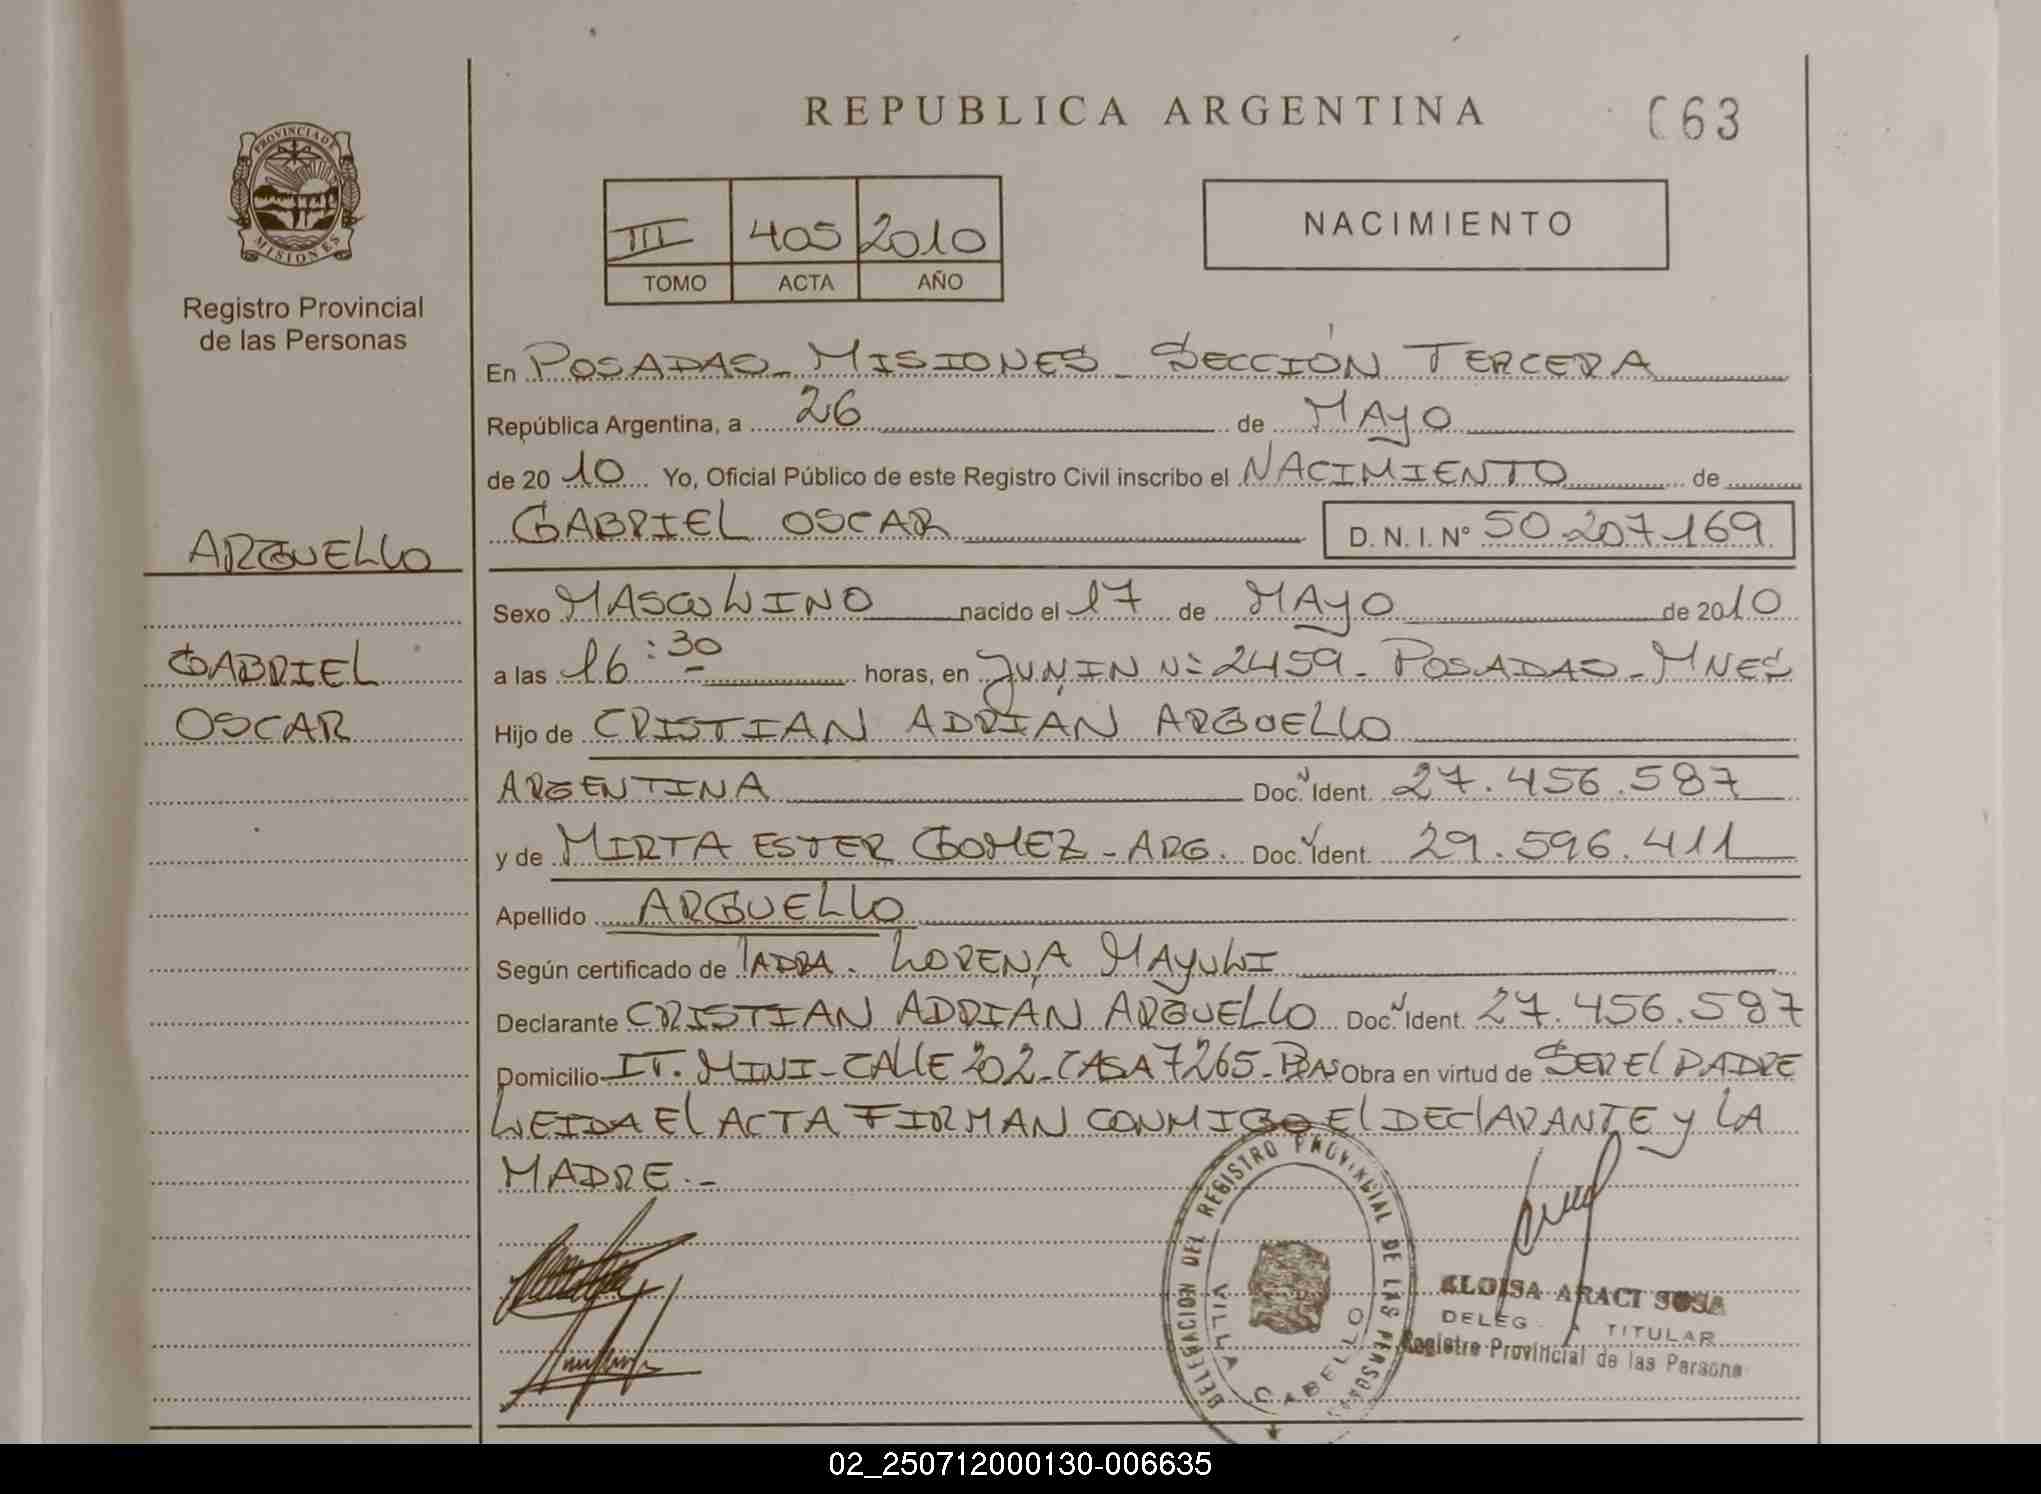 REPUBLICA ARGENTINA
063
PROVINCIA DE
MISIONES
Registro Provincial
de las Personas
III 405 2010
TOMO ACTA AÑO
NACIMIENTO
En POSADAS - MISIONES - SECCIÓN TERCERA
República Argentina, a 26 de MAYO
de 20 10 Yo, Oficial Público de este Registro Civil inscribo el NACIMIENTO de
GABRIEL OSCAR D. N. I. Nº 50.207.169
ARGUELLO
GABRIEL
OSCAR
Sexo MASCULINO nacido el 17 de MAYO de 2010
a las 16:30 horas, en JUNIN Nº 2459 - POSADAS - MNES
Hijo de CRISTIAN ADRIÁN ARGUELLO
ARGENTINA Doc. Ident. 27.456.587
y de MIRTA ESTER GOMEZ - ARG. Doc. Ident. 29.596.411
Apellido ARGUELLO
Según certificado de LORENA MAYULI
Declarante CRISTIAN ADRIÁN ARGUELLO Doc. Ident. 27.456.587
Domicilio IT. MINI - CALLE 202 - CASA 7265 - PDAS Obra en virtud de SER El PADRE
LEIDA El ACTA FIRMAN CONMIGO El DEClARANTE y LA
MADRE.-
DELEGACION DEL REGISTRO PROVINCIAL DE LAS PERSONAS
VILLA CABELLO
ELOISA ARACI SOSA
DELEG A TITULAR
Registro Provincial de las Persona
02_250712000130-006635